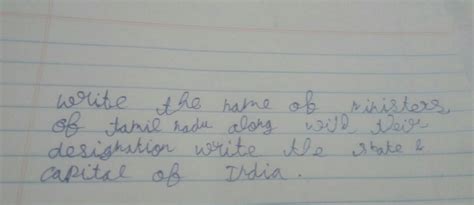 write the name of ministers
of tamil nadu along with their
designation write the state &
capital of India.